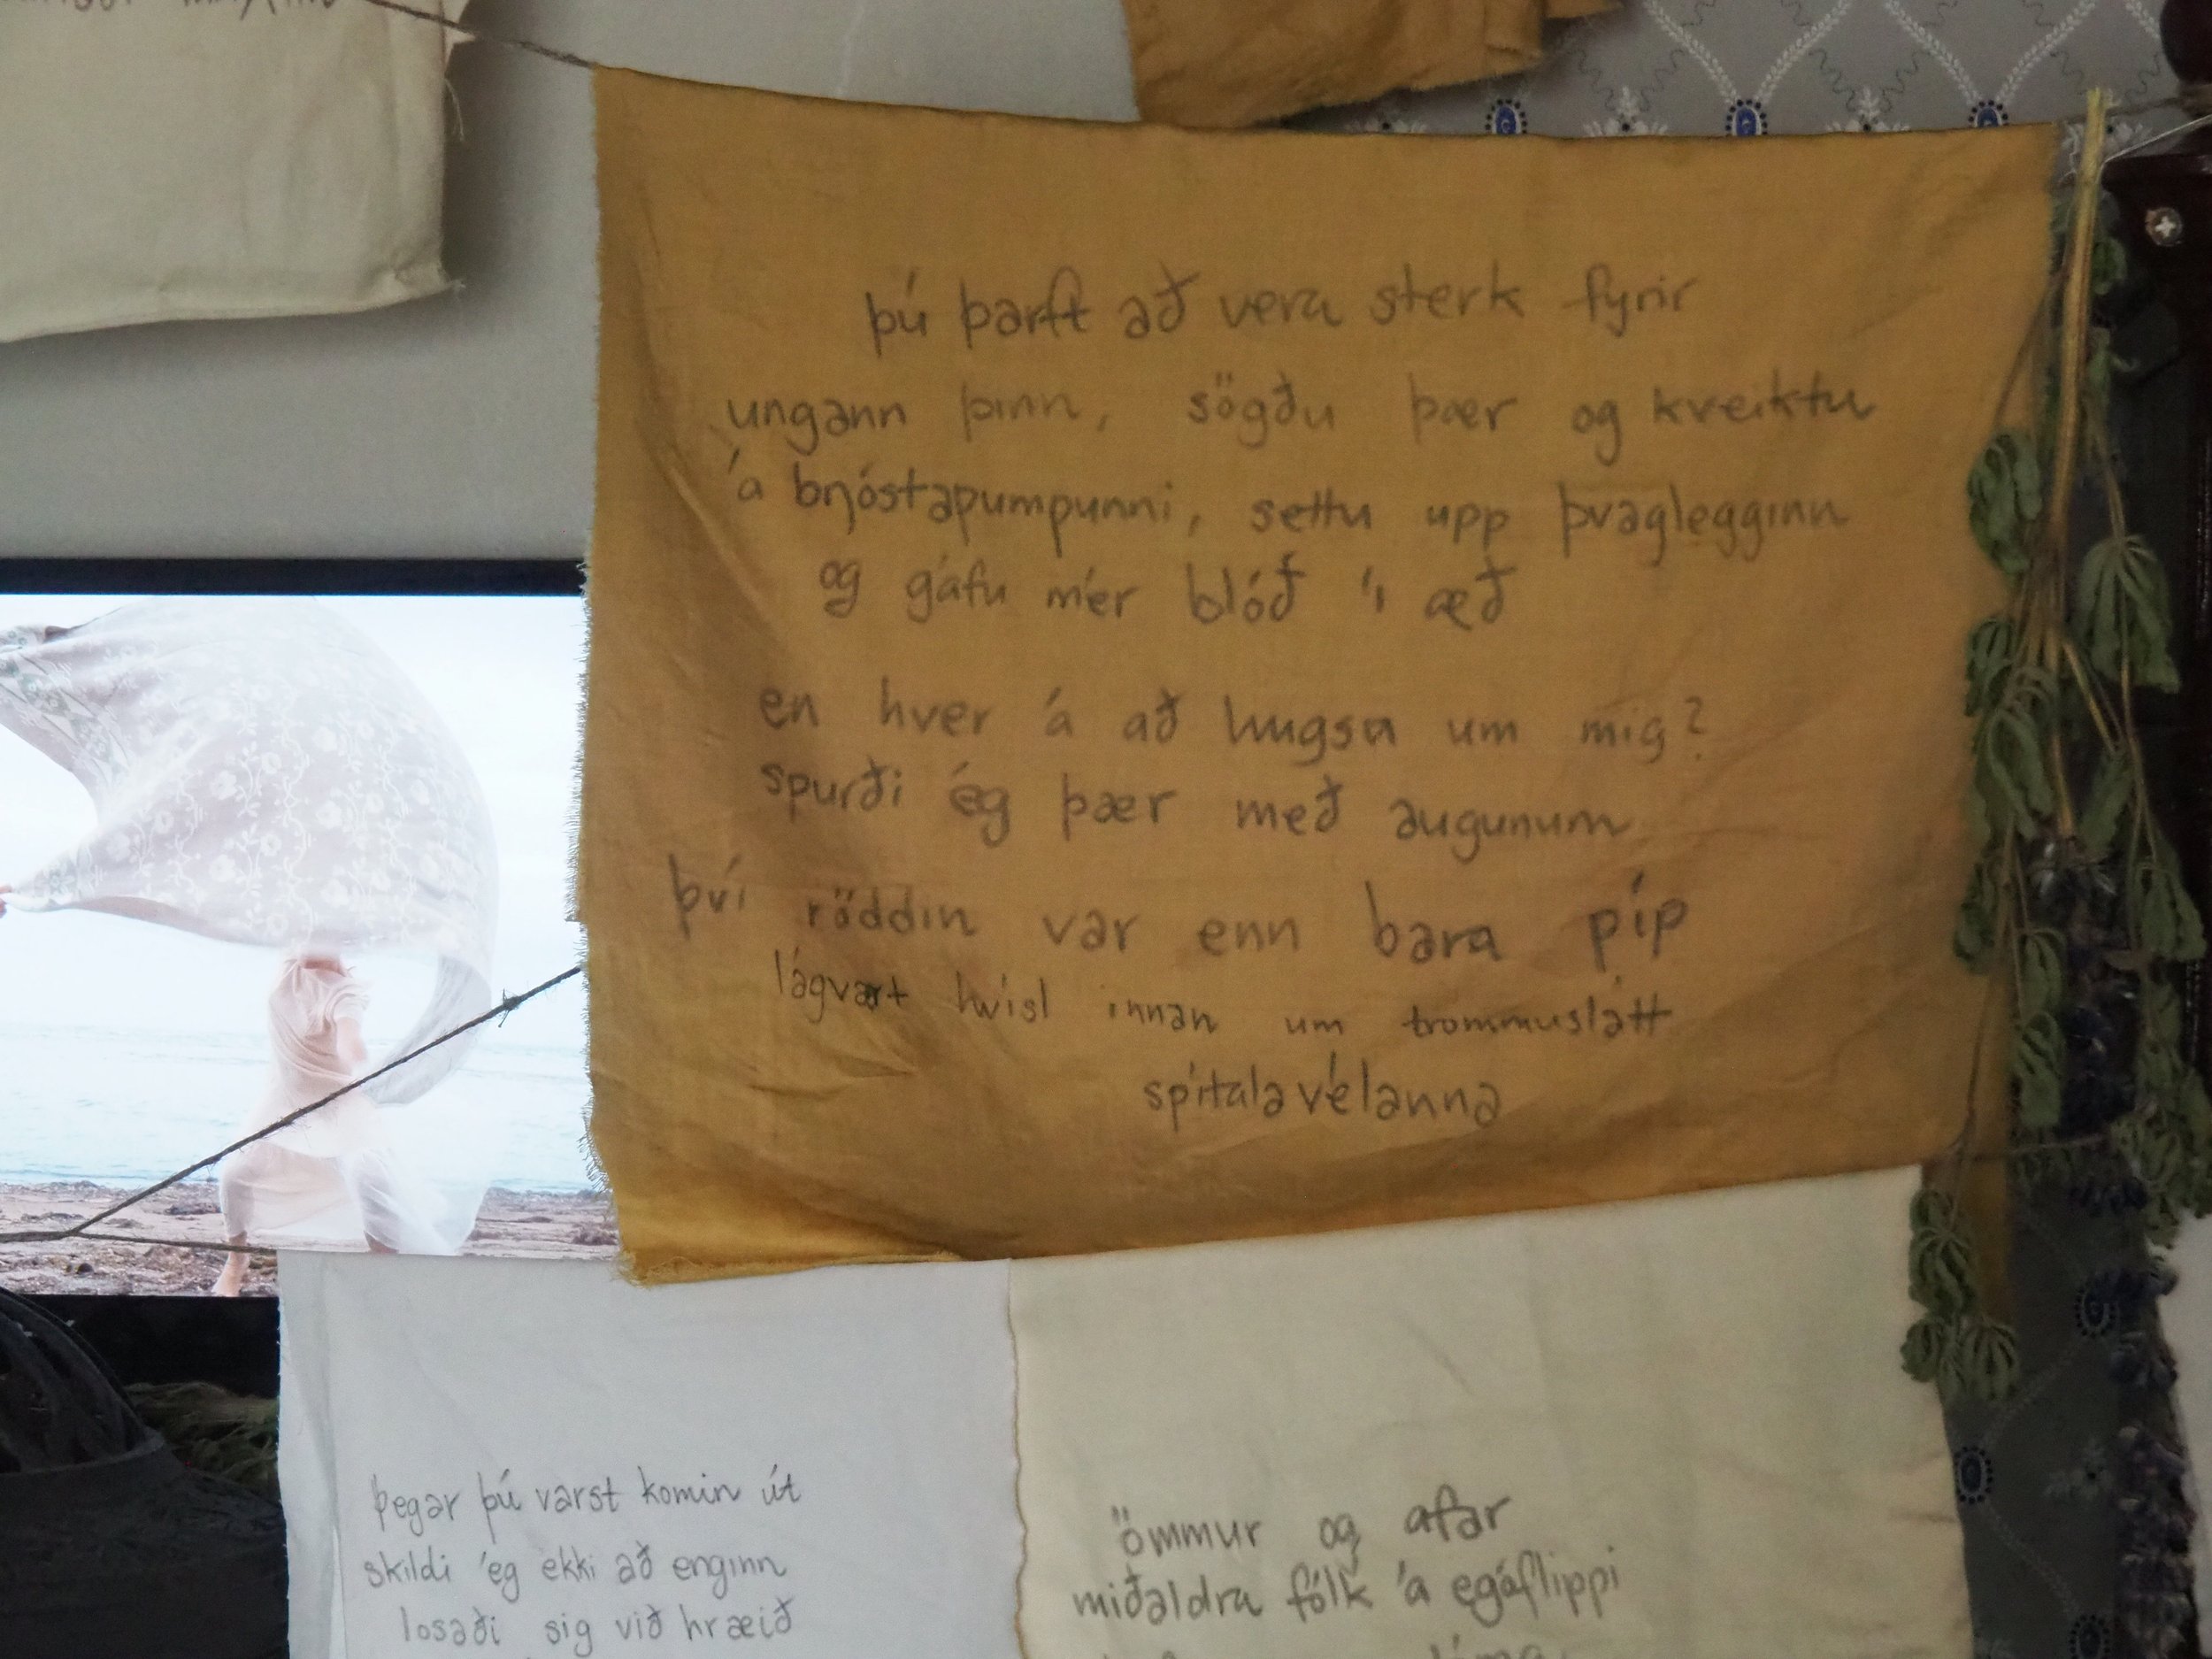 þú þarft að vera sterk fyrir
ungann þinn, sögðu þær og kveiktu
á brjóstapumpunni, settu upp þvaglegginn
og gáfu mér blóð í æð
en hver á að hugsa um mig?
spurði ég þær með augunum
því röddin var enn bara píp
lágvært hvísl innan um trommuslátt
spítalavélanna
þegar þú varst komin út
skildi ég ekki að enginn
losaði sig við hræið
ömmur og afar
miðaldra fólk á egóflippi